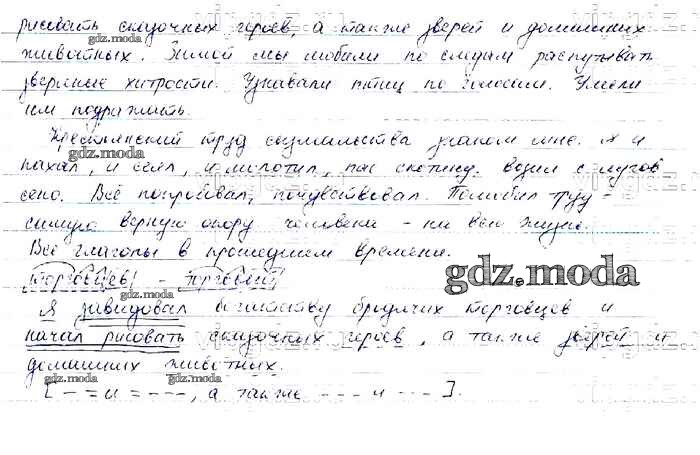 рисовать сказочных героев, а также зверей и домашних
животных. Зимой мы любили по следам распутывать
звериные хитрости. Узнавали птиц по голосам. Умели
им подражать.
Крестьянский труд с измальства знаком мне. Я и
пахал, и сеял, и молотил, пас скотину, возил с лугов
сено. Всё попробовал, почувствовал. Полюбил труд –
самую верную опору человека – на всю жизнь.
Все глаголы в прошедшем времени.
торговцев – торговый
Я завидовал богатству бродячих торговцев и
начал рисовать сказочных героев, а также зверей и
домашних животных.
[– = и = ---, а также --- и ---].
gdz.moda
gdz.moda
gdz.moda
gdz.moda
gdz.moda
gdz.moda
gdz.moda
gdz.moda